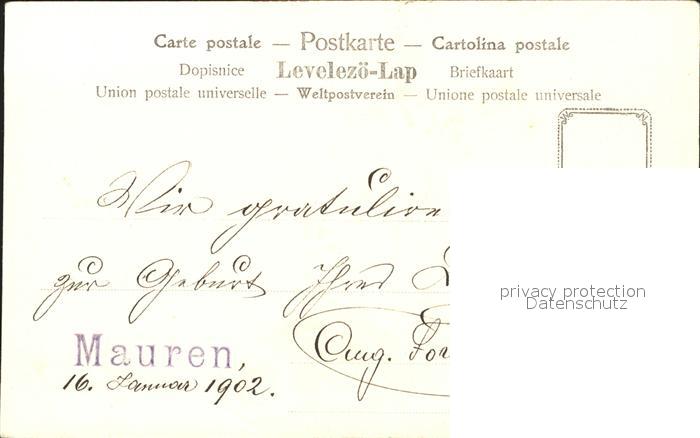 Carte postale — Postkarte — Cartolina postale
Dopisnice Levelező-Lap Briefkaart
Union postale universelle — Weltpostverein — Unione postale universale
Wir gratulire
zur Geburt Ihres
privacy protection
Datenschutz
Mauren,
Aug. For
16. Januar 1902.